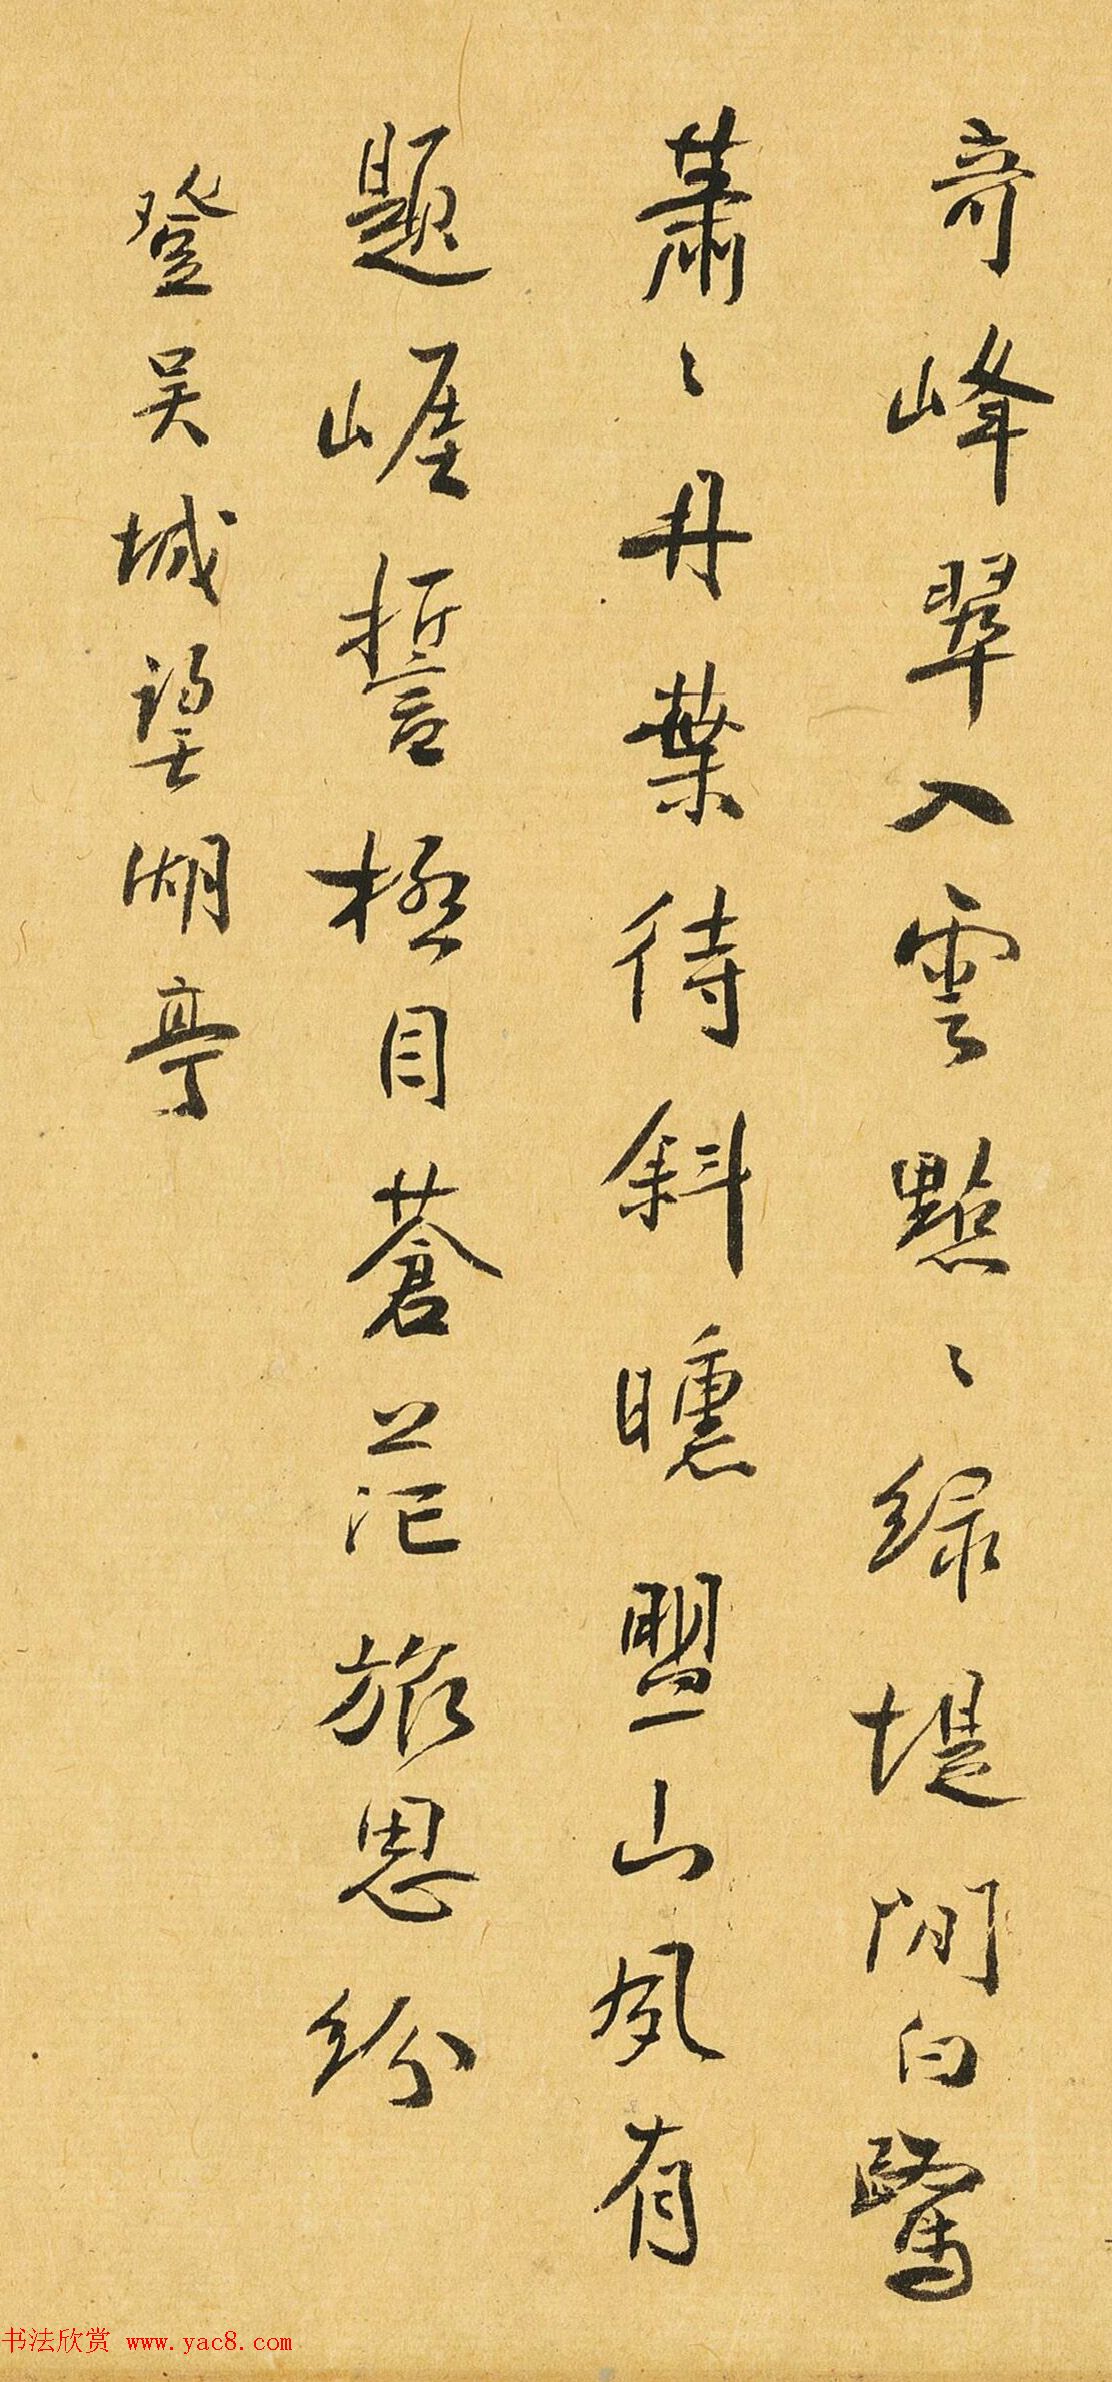 奇峰翠入雲點〻緑堤閒白鷺
蕭〻丹葉待斜曛盟山夙有
題崖誓極目蒼茫旅思紛
登吴城望湖亭
书法欣赏 www.yac8.com